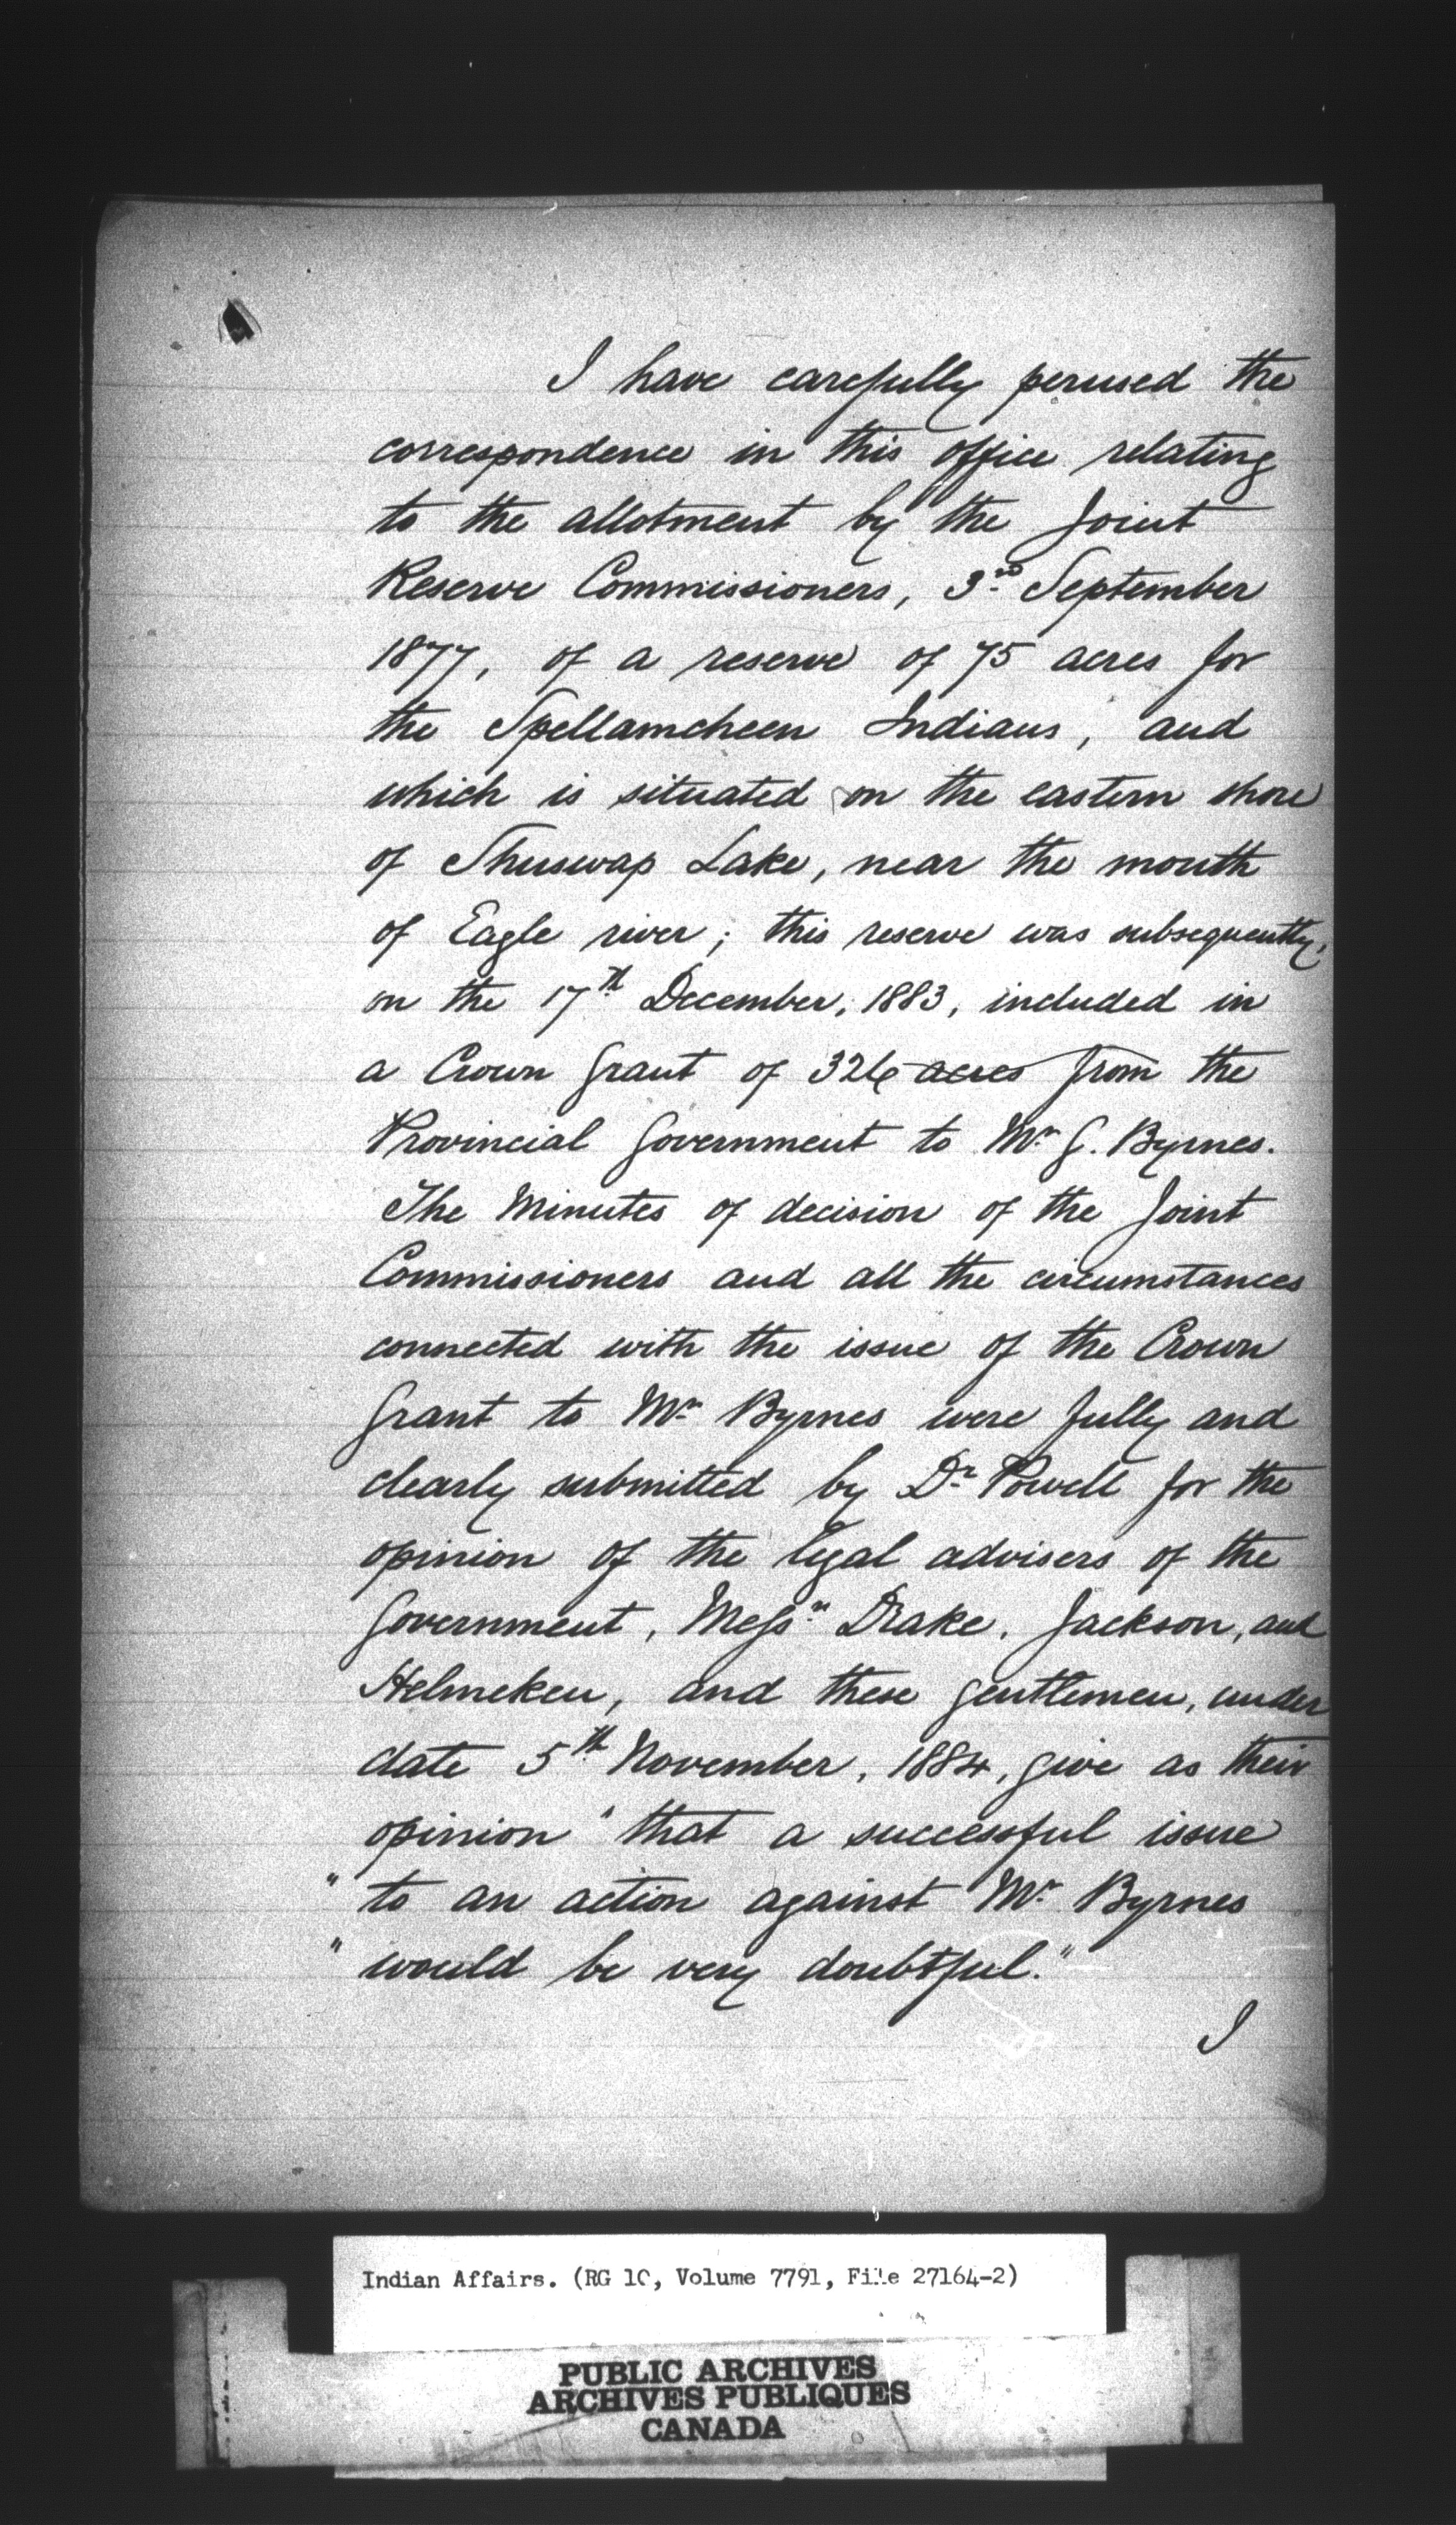 I have carefully perused the
correspondence in this office relating
to the allotment by the Joint
Reserve Commissioners, 3rd September
1877, of a reserve of 75 acres for
the Spellamcheen Indians, and
which is situated on the eastern shore
of Shuswap Lake, near the mouth
of Eagle river; this reserve was subsequently,
on the 17th December, 1883, included in
a Crown Grant of 326 acres from the
Provincial Government to Mr G. Byrnes.
The Minutes of decision of the Joint
Commissioners and all the circumstances
connected with the issue of the Crown
Grant to Mr Byrnes were fully and
clearly submitted by Dr Powell for the
opinion of the legal advisers of the
Government, Messrs Drake, Jackson, and
Helmcken, and these gentlemen, under
date 5th November, 1884, give as their
opinion "that a successful issue
" to an action against Mr Byrnes
" would be very doubtful."
I
Indian Affairs. (RG 10, Volume 7791, File 27164-2)
PUBLIC ARCHIVES
ARCHIVES PUBLIQUES
CANADA